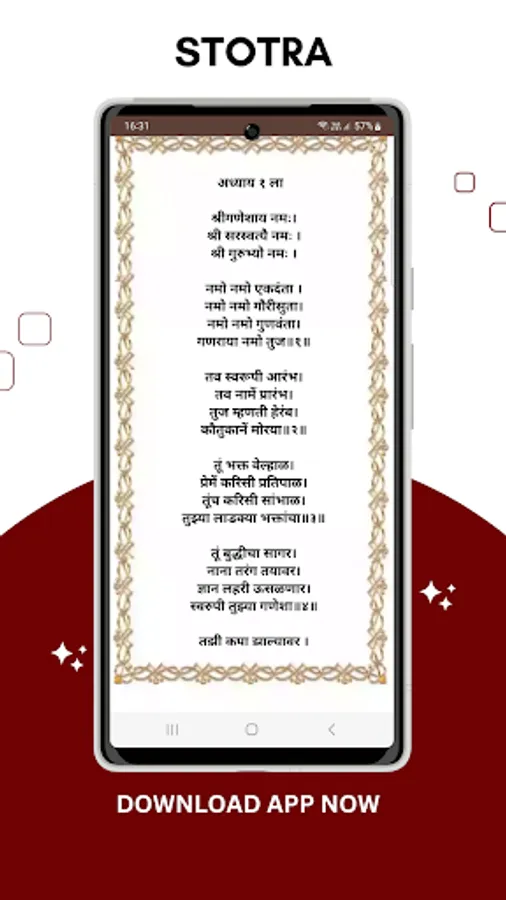 STOTRA
16:31
57%
अध्याय १ ला
श्रीगणेशाय नमः।
श्री सरस्वत्यै नमः ।
श्री गुरुभ्यो नमः ।
नमो नमो एकदंता ।
नमो नमो गौरीसुता।
नमो नमो गुणवंता।
गणराया नमो तुज॥१॥
तव स्वरूपी आरंभ।
तव नामें प्रारंभ।
तुज म्हणती हेरंब।
कौतुकानें मोरया॥२॥
तूं भक्त वेल्हाळ।
प्रेमें करिसी प्रतिपाळ।
तूंच करिसी सांभाळ।
तुझ्या लाडक्या भक्तांचा॥३॥
तूं बुद्धीचा सागर।
नाना तरंग तयावर।
ज्ञान लहरी ऊसळणार।
स्वरुपी तुझ्या गणेशा॥४॥
तुझी कृपा झाल्यावर ।
DOWNLOAD APP NOW